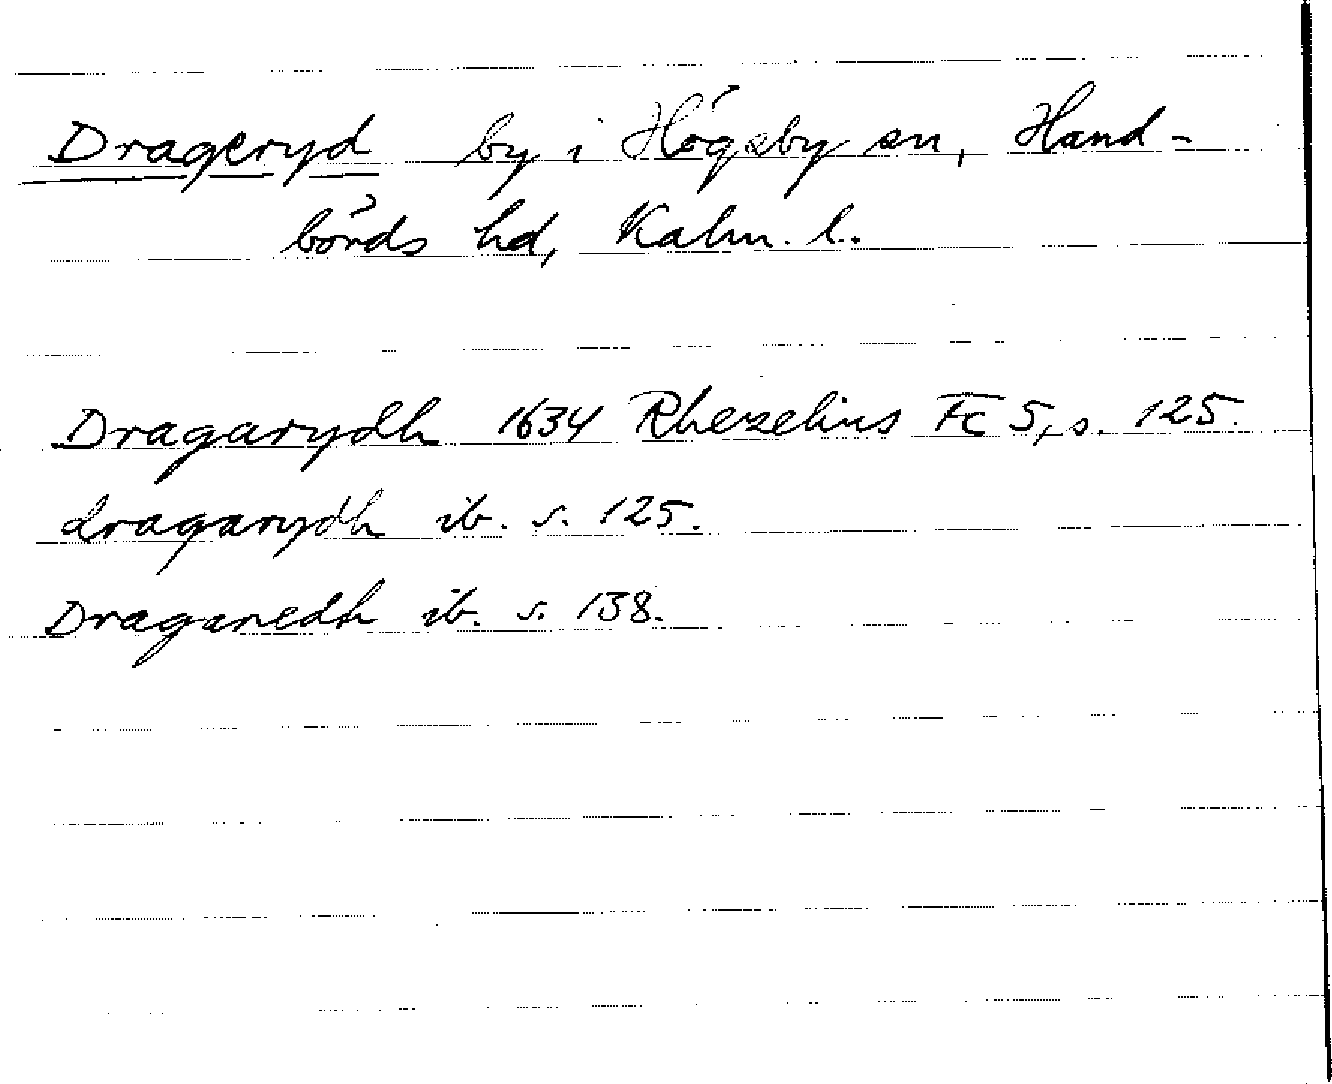 Drageryd by i Högsby sn, Hand-
börds hd, Kalm. l.
Dragarydh 1634 Rhezelius Fc 5, s. 125.
dragarydh ib. s. 125.
Dragaredh ib. s. 138.